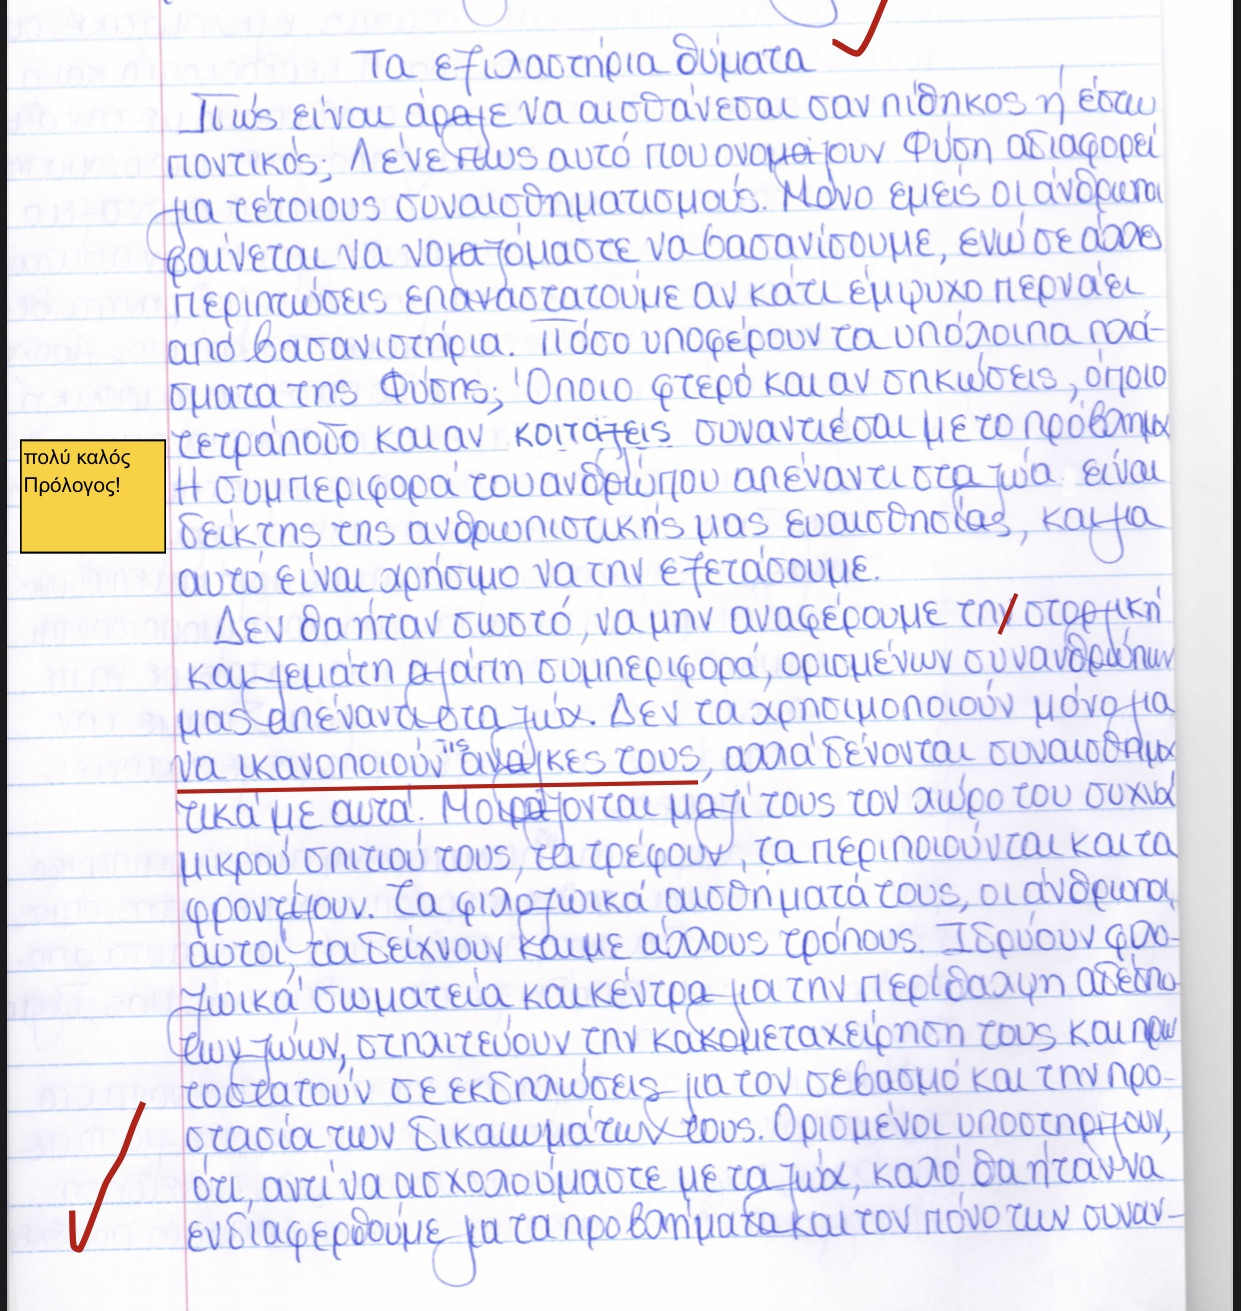 Τα εξιλαστήρια θύματα
Πώς είναι άραγε να αισθάνεσαι σαν πίθηκος ή έστω
ποντικός; Λένε πως αυτό που ονομάζουν Φύση αδιαφορεί
για τέτοιους συναισθηματισμούς. Μόνο εμείς οι άνθρωποι
φαίνεται να νοιαζόμαστε να βασανίσουμε, ενώ σε άλλες
περιπτώσεις επαναστατούμε αν κάτι έμψυχο περνάει
από βασανιστήρια. Πόσο υποφέρουν τα υπόλοιπα πλά-
σματα της Φύσης; Όποιο φτερό και αν σηκώσεις, όποιο
τετράποδο και αν κοιτάζεις συναντιέσαι με το πρόβλημα
Η συμπεριφορά του ανθρώπου απέναντι στα ζώα είναι
δείκτης της ανθρωπιστικής μας ευαισθησίας, και για
αυτό είναι χρήσιμο να την εξετάσουμε.
πολύ καλός
Πρόλογος!
Δεν θα ήταν σωστό, να μην αναφέρουμε την στοργική
και γεμάτη αγάπη συμπεριφορά, ορισμένων συνανθρώπων
μας απέναντι στα ζώα. Δεν τα χρησιμοποιούν μόνο για
να ικανοποιούν τις ανάγκες τους, αλλά δένονται συναισθημα
τικά με αυτά. Μοιράζονται μαζί τους τον χώρο του συχνά
μικρού σπιτιού τους, τα τρέφουν, τα περιποιούνται και τα
φροντίζουν. Τα φιλοζωικά αισθήματά τους, οι άνθρωποι
αυτοί, τα δείχνουν και με άλλους τρόπους. Ιδρύουν φιλο-
ζωικά σωματεία και κέντρα για την περίθαλψη αδέσπο
των ζώων, στηλιτεύουν την κακομεταχείρηση τους και πρω
τοστατούν σε εκδηλώσεις για τον σεβασμό και την προ-
στασία των δικαιωμάτων τους. Ορισμένοι υποστηρίζουν,
ότι αντί να ασχολούμαστε με τα ζώα, καλό θα ήταν να
ενδιαφερθούμε για τα προβλήματα και τον πόνο των συναν-